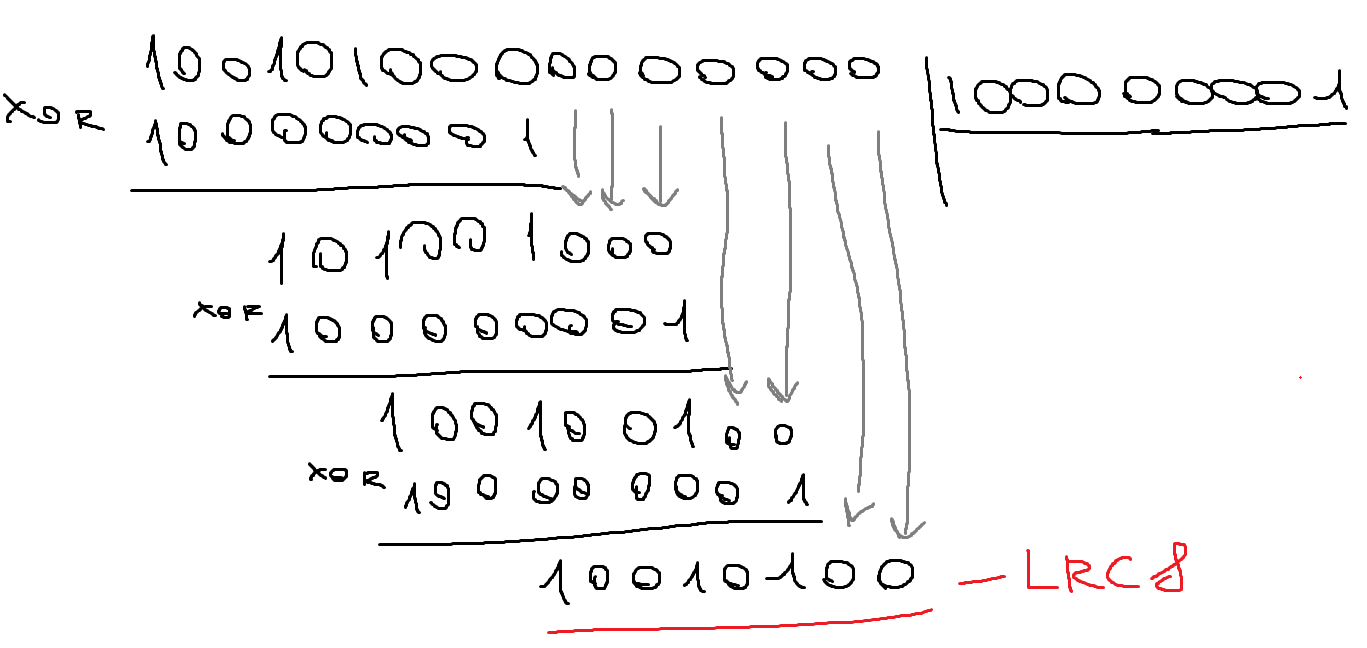 1001010000000000 100000001
XOR 100000001
101001000
XOR 100000001
100100100
XOR 100000001
10010100 — LRC8